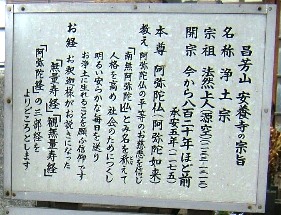 昌芳山 安養寺の宗旨
名称 浄土宗
宗祖 法然上人(源空)(一一三三~一二一二)
開宗 今から八百二十年ほど前
承安五年(一一七五)
本尊 阿弥陀仏(阿弥陀如来)
教え 阿弥陀仏の平等のお慈悲を信じ
「南無阿弥陀仏」とみ名を称えて
人格を高め 社会のためにつくし
明るい安らかな毎日を送り
お浄土に生れることを願う信仰です
お経 お釈迦様がお説きになった
「無量寿経」「観無量寿経」
「阿弥陀経」の三部経を
よりどころとします